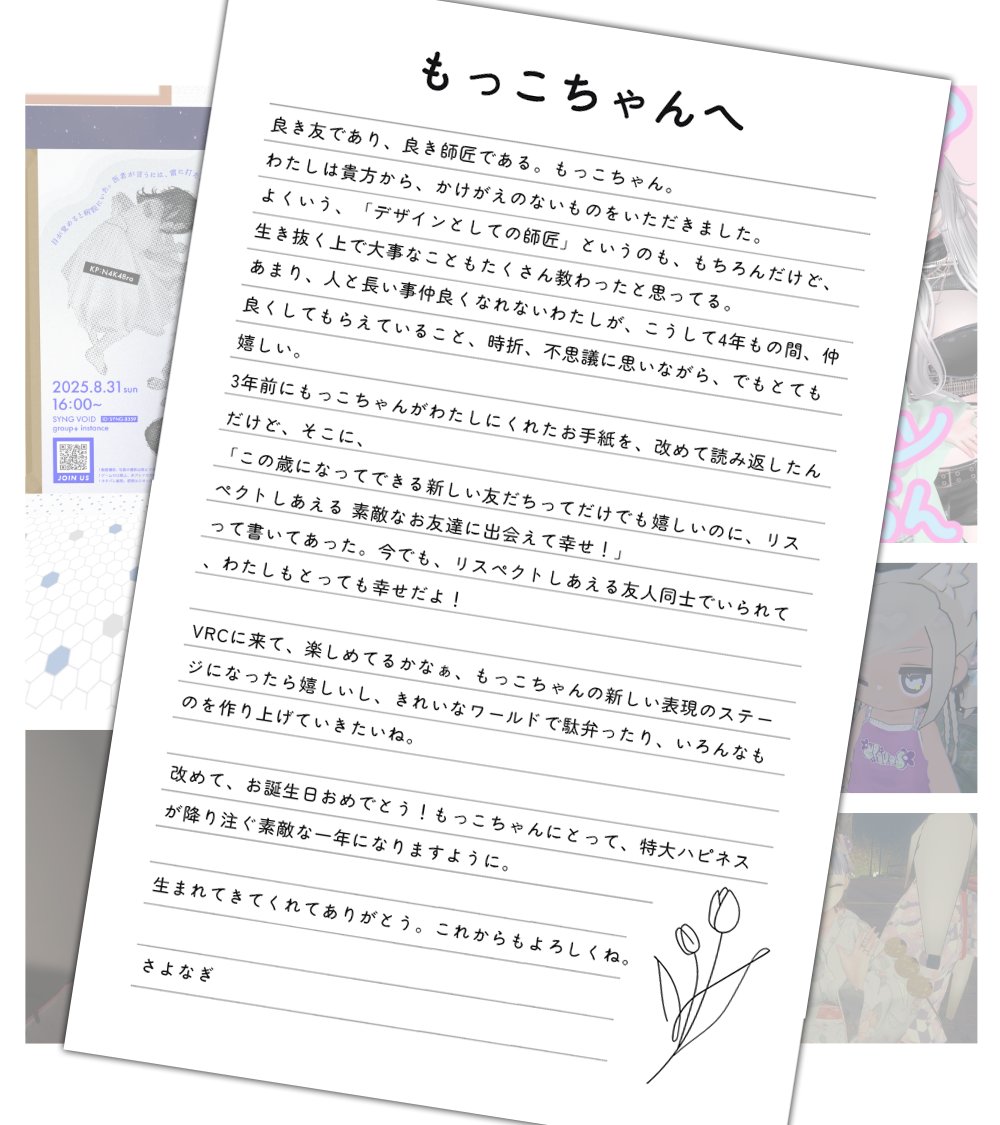 もっこちゃんへ
良き友であり、良き師匠である。もっこちゃん。
わたしは貴方から、かけがえのないものをいただきました。
よくいう、「デザインとしての師匠」というのも、もちろんだけど、
生き抜く上で大事なこともたくさん教わったと思ってる。
あまり、人と長い事仲良くなれないわたしが、こうして4年もの間、仲
良くしてもらえていること、時折、不思議に思いながら、でもとても
嬉しい。
3年前にもっこちゃんがわたしにくれたお手紙を、改めて読み返したん
だけど、そこに、
「この歳になってできる新しい友だちってだけでも嬉しいのに、リス
ペクトしあえる 素敵なお友達に出会えて幸せ!」
って書いてあった。今でも、リスペクトしあえる友人同士でいられて
、わたしもとっても幸せだよ!
VRCに来て、楽しめてるかなぁ、もっこちゃんの新しい表現のステー
ジになったら嬉しいし、きれいなワールドで駄弁ったり、いろんなも
のを作り上げていきたいね。
改めて、お誕生日おめでとう!もっこちゃんにとって、特大ハピネス
が降り注ぐ素敵な一年になりますように。
生まれてきてくれてありがとう。これからもよろしくね。
さよなぎ
目が覚めると病院にいた。医者が言うには、雷に打た
KP:N4K4Bra
2025.8.31 sun
16:00~
SYNG VOID ID/SYNG.8359
group+ instance
JOIN US